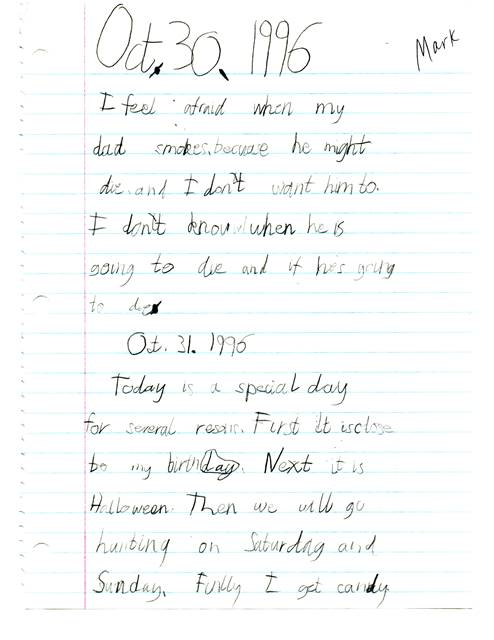 Oct. 30, 1996
Mark
I feel afraid when my
dad smokes because he might
die and I don't want him to.
I don't know when he is
going to die and if he's going
to die
Oct. 31. 1996
Today is a special day
for several resons. First it is close
to my birthday. Next it is
Halloween. Then we will go
hunting on Saturday and
Sunday. Finlly I get candy